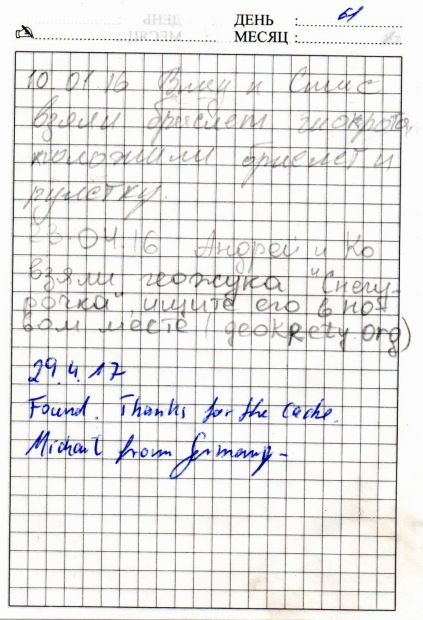 ДЕНЬ : 61
МЕСЯЦ :
10 01 16 Влад и Стис
взяли браслет
положили брислет и
рулетку.
23.04.16 Андрей и Ко
взяли геожука "Снегу-
рочка", ищите его в но-
вом месте (geokrety.org)
29.4.17
Found. Thanks for the cache.
Michael from Germany -